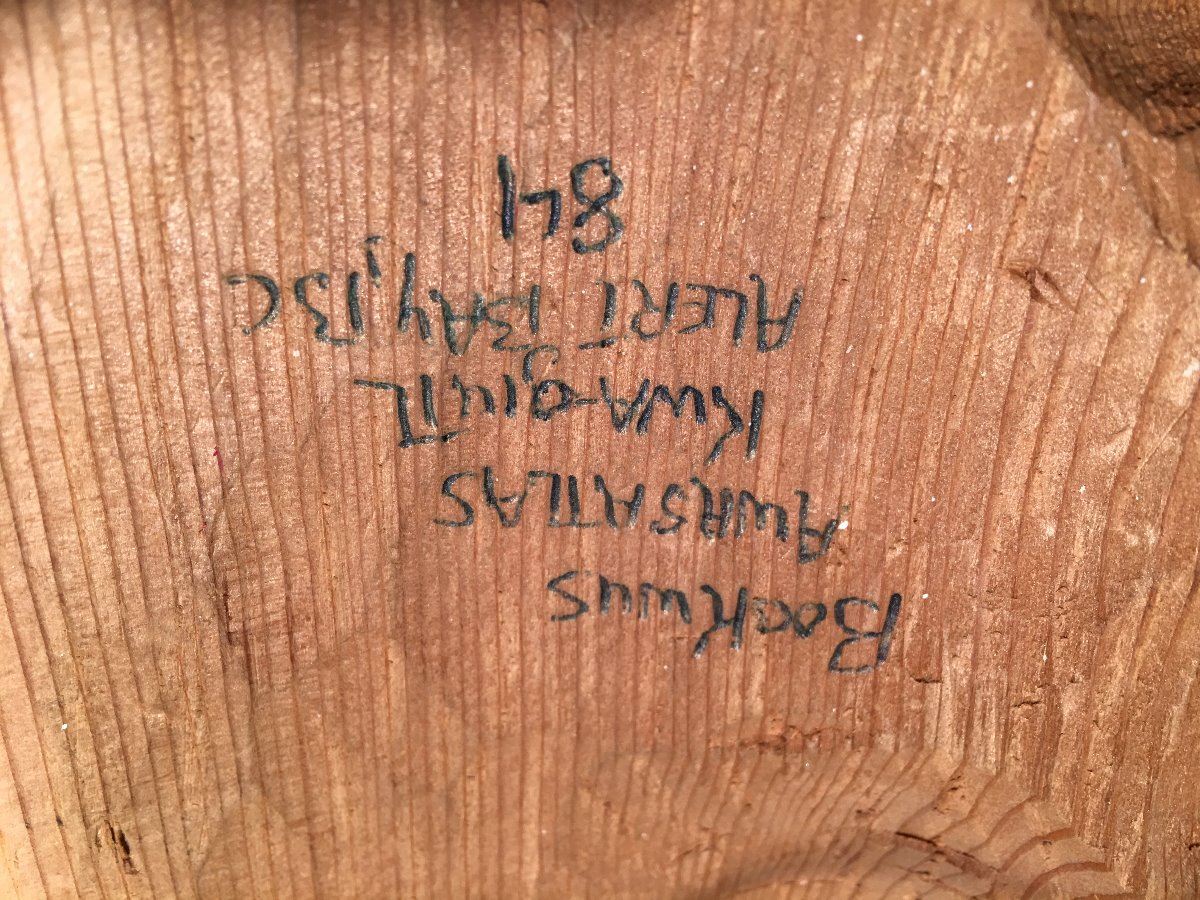 BOOKWUS
AWASATLAS
KWA-GIUTL
ALERT BAY, BC
84